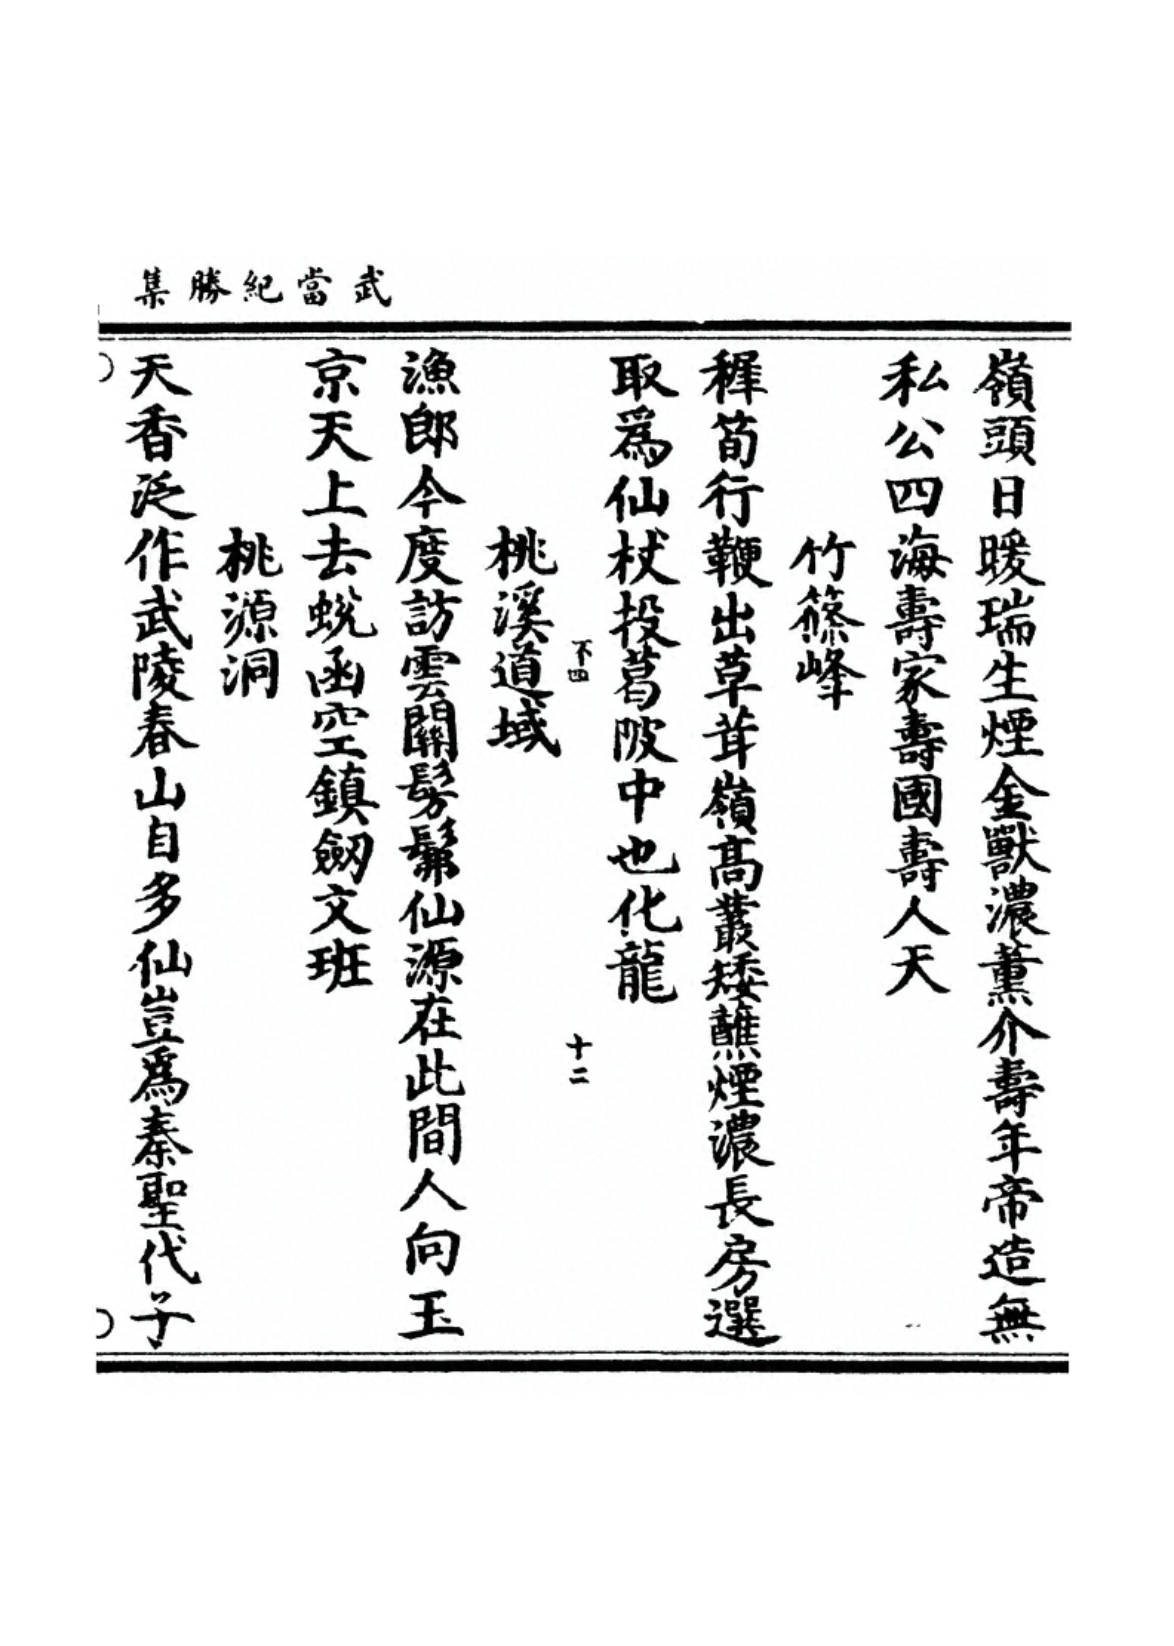 武當紀勝集
嶺頭日暖瑞生煙金獸濃薰介壽年帝造無
私公四海壽家壽國壽人天
竹篠峰
穉筍行鞭出草茸嶺高叢矮蘸煙濃長房選
取爲仙杖投葛陂中也化龍
不四
十二
桃溪道域
漁郎今度訪雲關髣髴仙源在此間人向玉
京天上去蛻函空鎮劒文班
桃源洞
天香泛作武陵春山自多仙豈爲秦聖代子